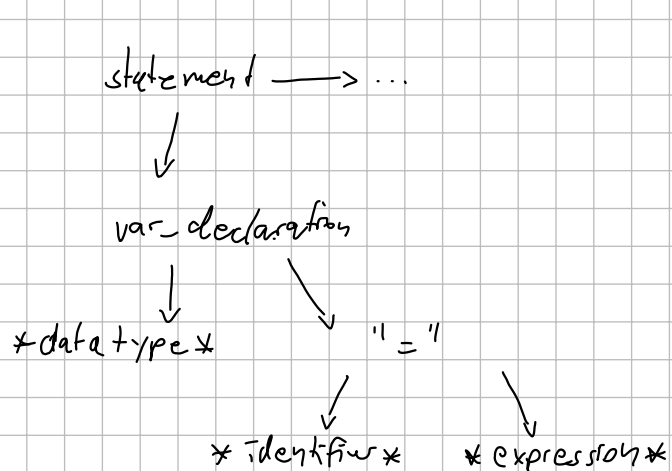 statement ...
var_declaration
*datatype* "="
*identifier* *expression*